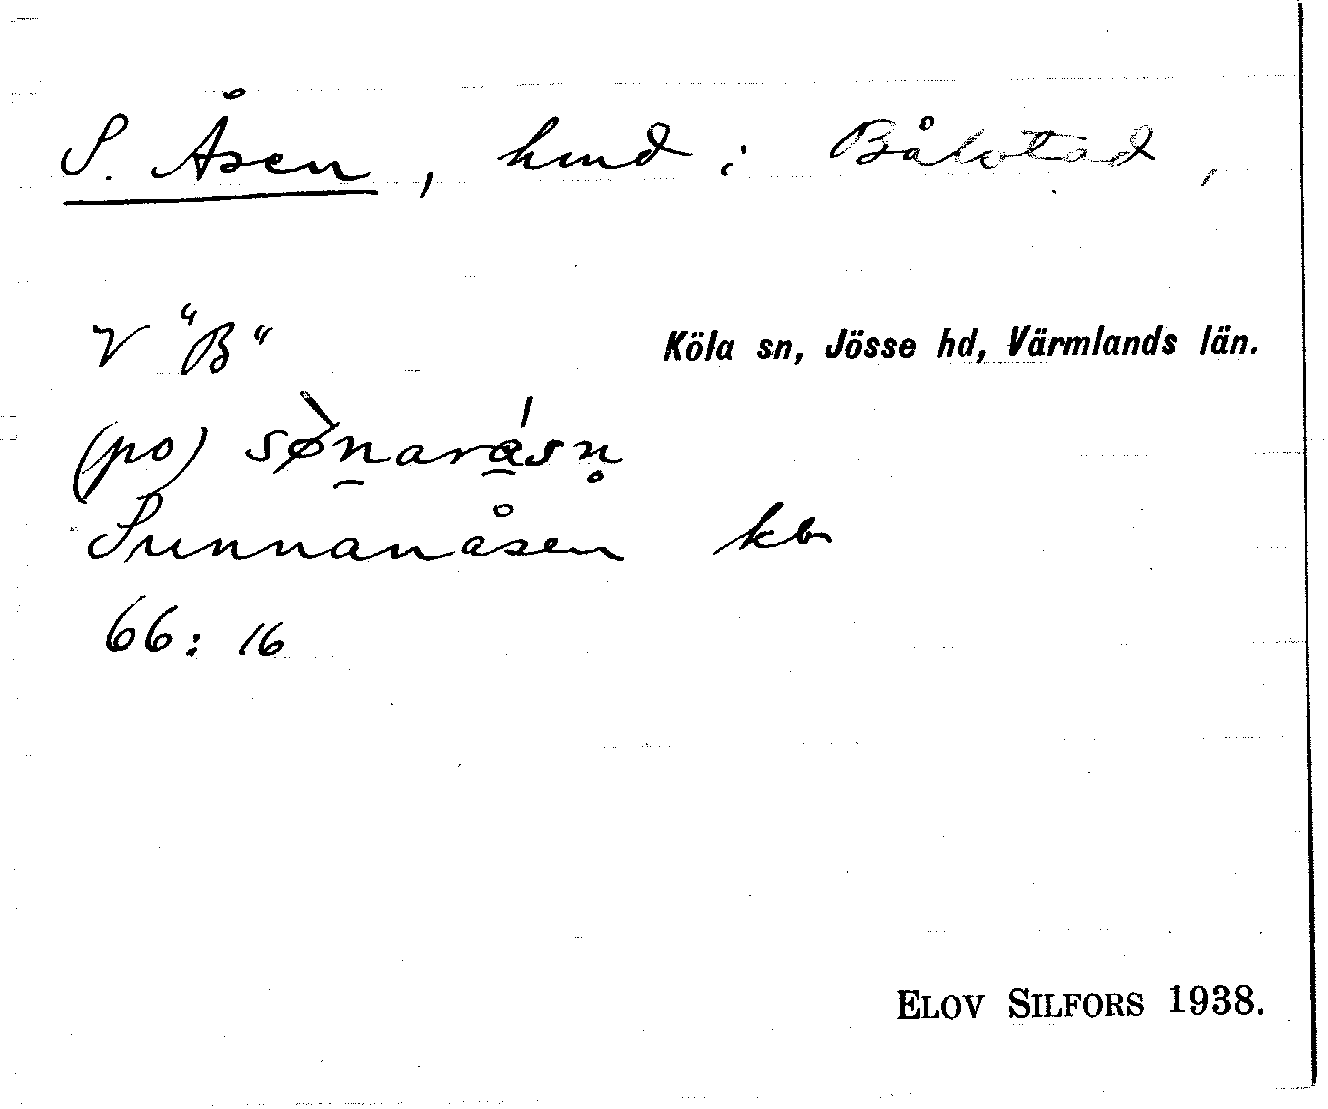 S. Åsen, hmd i Bålstad,
V "B" Köla sn, Jösse hd, Värmlands län.
(po) sø̀naråsn̥
Sunnanåsen kbr
66: 16
ELOV SILFORS 1938.